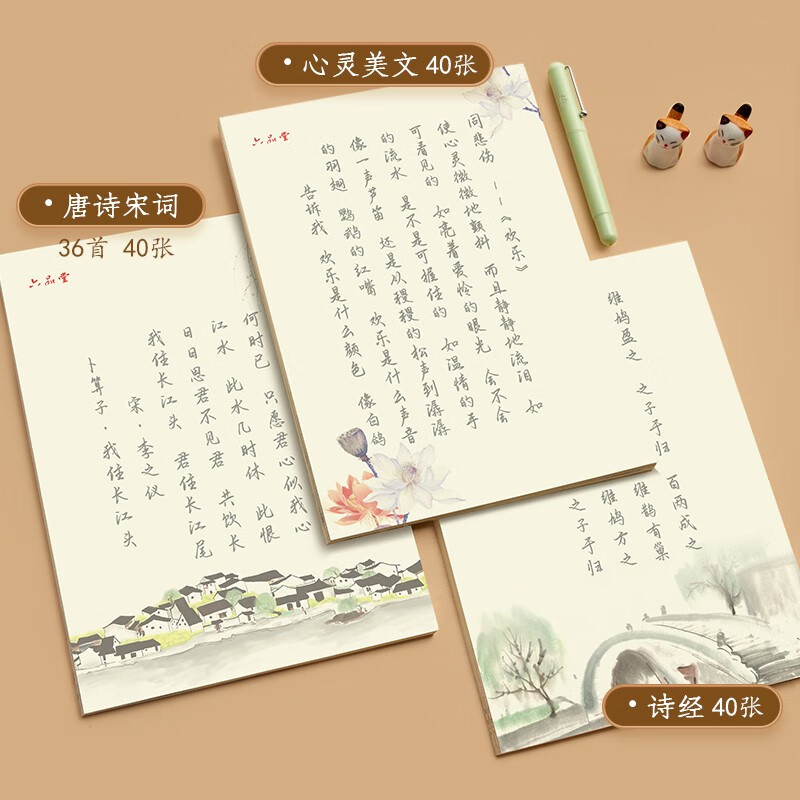 心灵美文 40张
唐诗宋词
36首 40张
六品堂
告诉我 欢乐是什么颜色 像白鸽
的羽翅 鹦鹉的红嘴 欢乐是什么声音
像一声芦笛 还是从稷稷的松声到潺潺
的流水 是不是可握住的 如温情的手
可看见的 如亮着爱怜的眼光 会不会
使心灵微微地颤抖 而且静静地流泪 如
同悲伤 --《欢乐》
六品堂
卜算子·我住长江头
宋·李之仪
我住长江头 君住长江尾
日日思君不见君 共饮长
江水 此水几时休 此恨
何时已 只愿君心似我心
之子于归
维鸠方之
维鹊有巢
维鸠盈之 之子于归 百两成之
诗经 40张